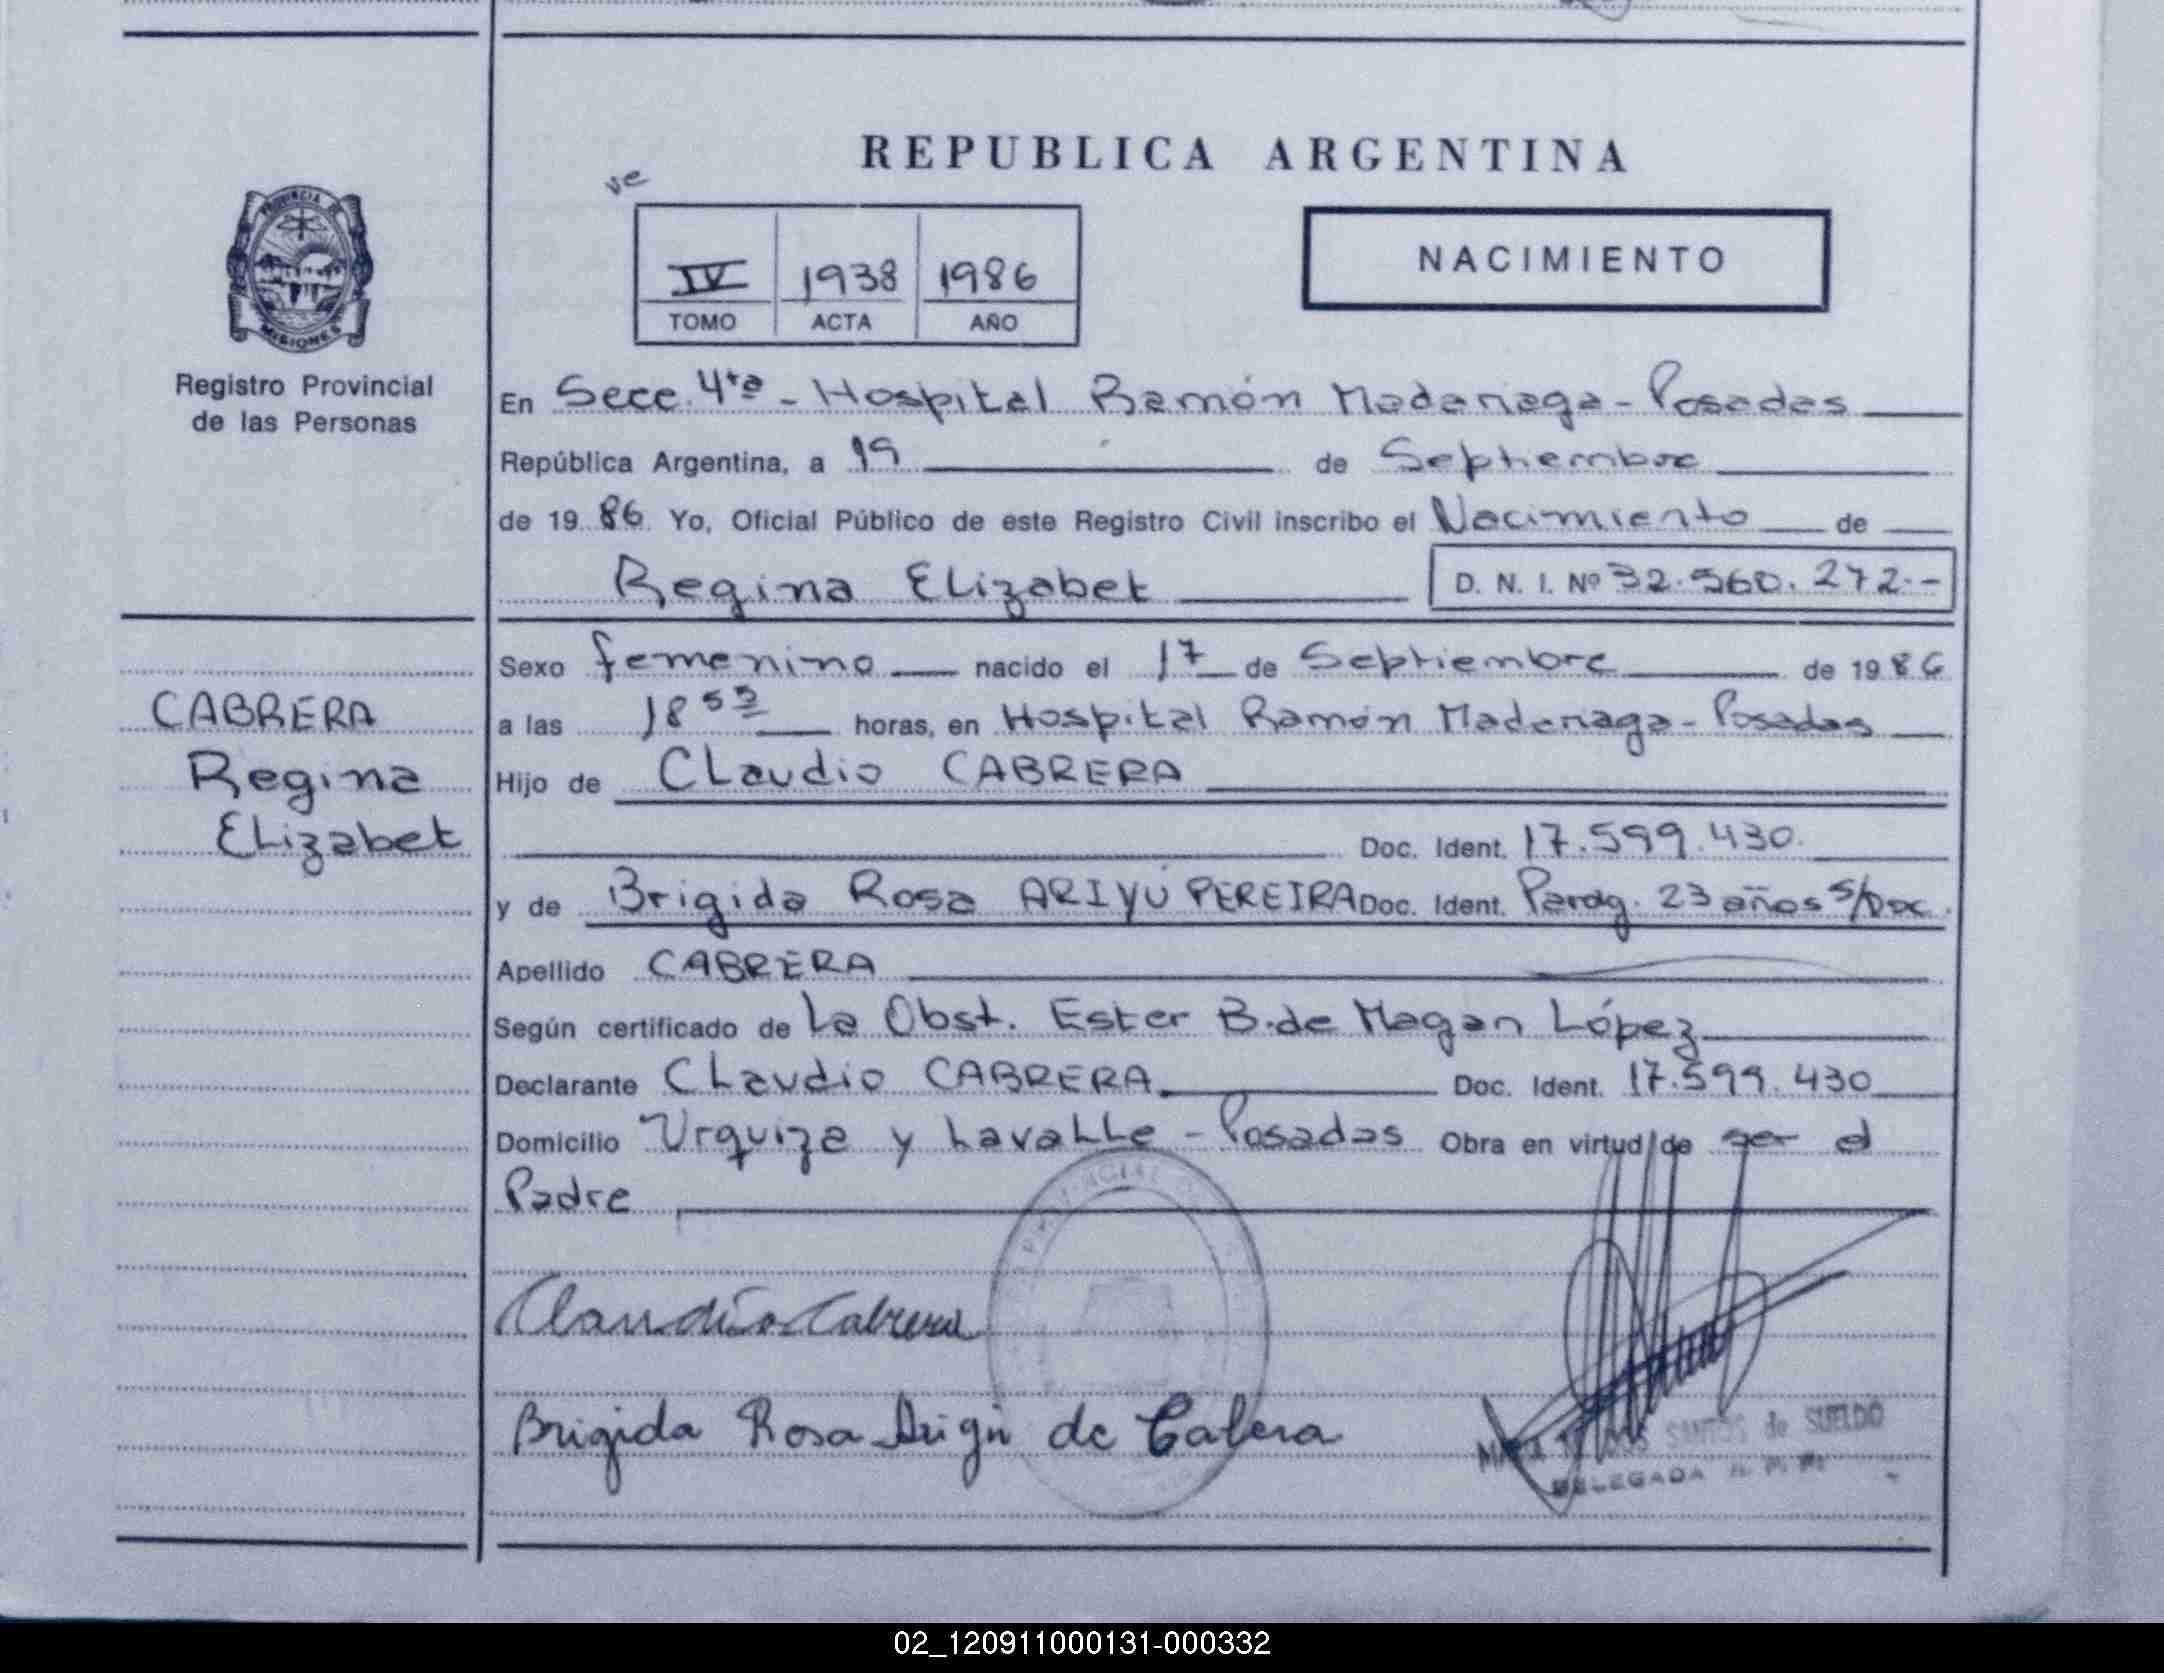 REPUBLICA ARGENTINA
ve
IV 1938 1986
TOMO ACTA AÑO
NACIMIENTO
PROVINCIA DE
MISIONES
Registro Provincial
de las Personas
En Secc. 4ta - Hospital Ramón Madariaga - Posadas
República Argentina, a 19 de Septiembre
de 19 86 Yo, Oficial Público de este Registro Civil inscribo el Nacimiento de
Regina Elizabet D. N. I. Nº 32.560.272.-
Sexo femenino nacido el 17 de Septiembre de 19 86
CABRERA
Regina
Elizabet
a las 18 55 horas, en Hospital Ramón Madariaga - Posadas
Hijo de Claudio CABRERA
Doc. Ident. 17.599.430.
y de Brigida Rosa ARIYÚ PEREIRA Doc. Ident. Parag. 23 años s/Doc.
Apellido CABRERA
Según certificado de la Obst. Ester B. de Magan López
Declarante Claudio CABRERA Doc. Ident. 17.599.430
Domicilio Urquiza y Lavalle - Posadas Obra en virtud de ser el
Padre
PROVINCIAL
Claudio Cabrera
Brigida Rosa Arigu de Cabera
SANTOS de SUELDO
DELEGADA R. P. P.
02_120911000131-000332